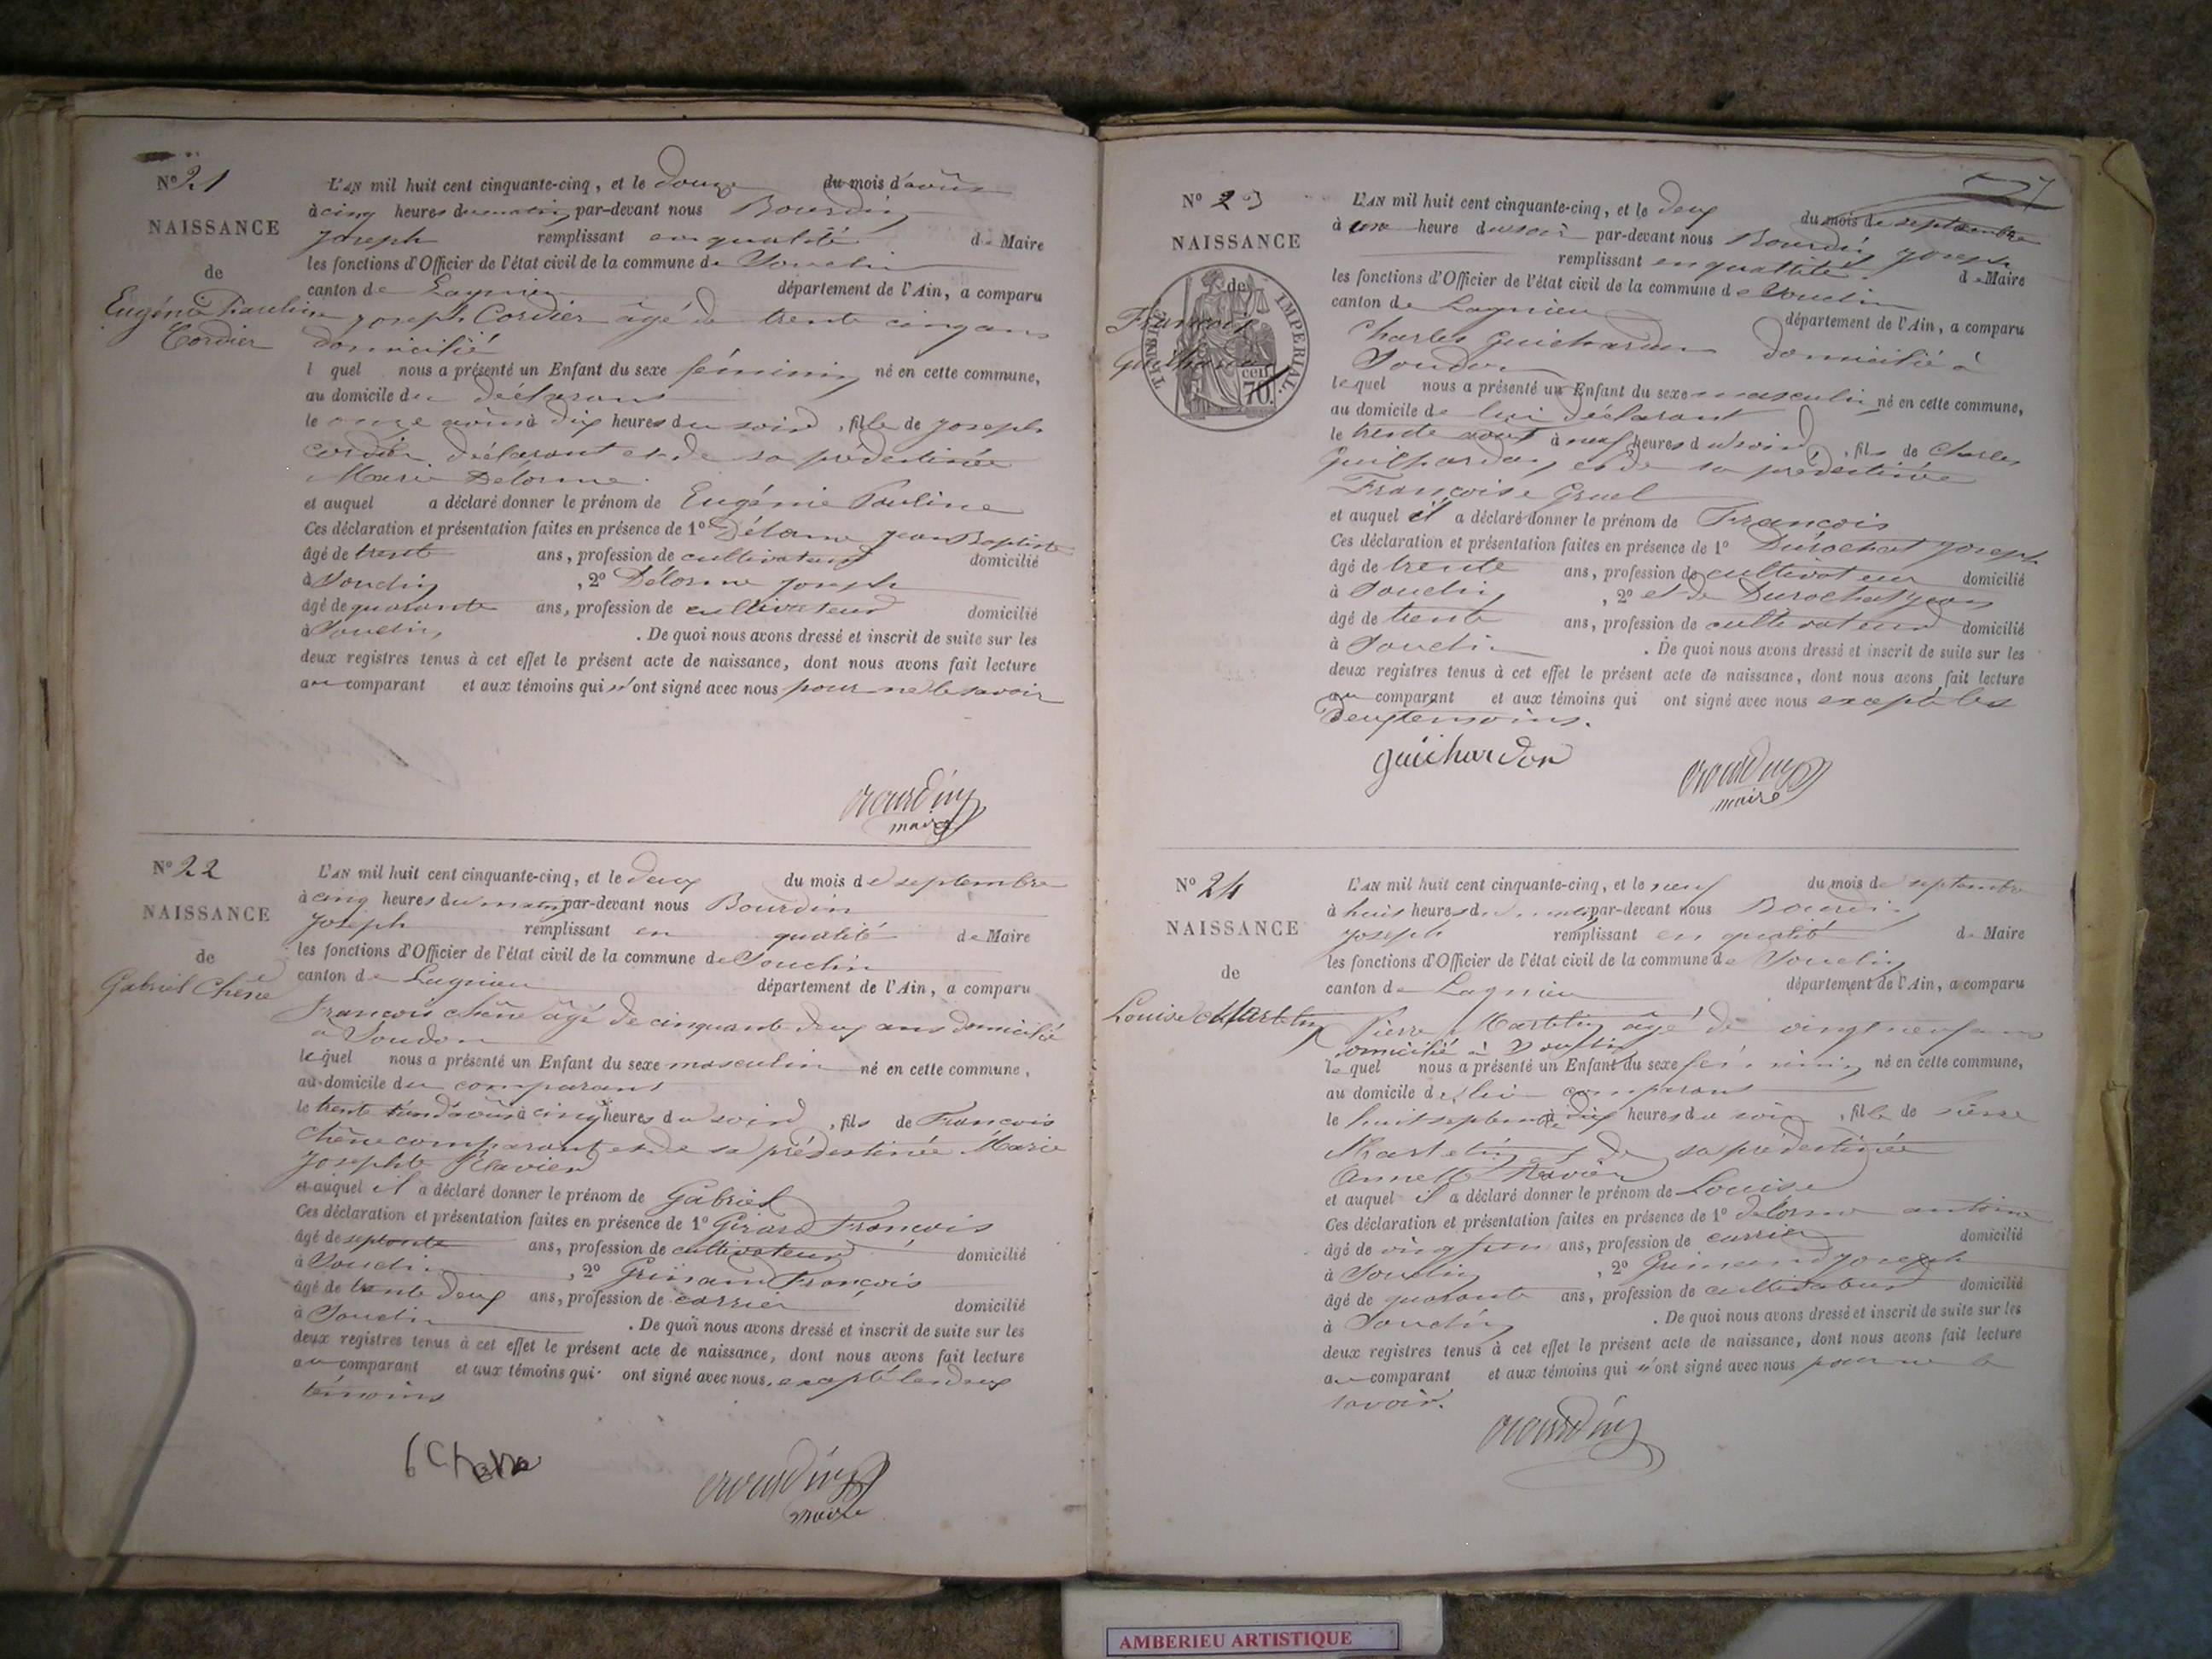 Nº 21
NAISSANCE
de
Eugénie Pauline
Cordier
L'AN mil huit cent cinquante-cinq, et le douze du mois d'août
à cinq heures du matin par-devant nous Bourdin
Joseph remplissant en qualité de Maire
les fonctions d'Officier de l'état civil de la commune de Souclin
canton de Lagnieu département de l'Ain, a comparu
Joseph Cordier âgé de trente cinq ans
domicilié
l quel nous a présenté un Enfant du sexe féminin né en cette commune,
au domicile du déclarant
le onze août à dix heures du soir, fille de Joseph
Cordier déclarant et de sa prédestinée
Marie Delorme
et auquel a déclaré donner le prénom de Eugénie Pauline
Ces déclaration et présentation faites en présence de 1º Délorme Jean Baptiste
âgé de trente ans, profession de cultivateur domicilié
à Souclin, 2º Délorme Joseph
âgé de quarante ans, profession de cultivateur domicilié
à Souclin. De quoi nous avons dressé et inscrit de suite sur les
deux registres tenus à cet effet le présent acte de naissance, dont nous avons fait lecture
au comparant et aux témoins qui n'ont signé avec nous pour ne le savoir
Bourdin
maire
Nº 22
NAISSANCE
de
Gabriel Chêne
L'AN mil huit cent cinquante-cinq, et le deux du mois de septembre
à cinq heures du matin par-devant nous Bourdin
Joseph remplissant en qualité de Maire
les fonctions d'Officier de l'état civil de la commune de Souclin
canton de Lagnieu département de l'Ain, a comparu
François Chêne âgé de cinquante deux ans domicilié
à Soudon
lequel nous a présenté un Enfant du sexe masculin né en cette commune,
au domicile du comparant
le trente d'août à cinq heures du soir, fils de François
Chêne comparant et de sa prédestinée Marie
Josephte Ravier
et auquel il a déclaré donner le prénom de Gabriel
Ces déclaration et présentation faites en présence de 1º Girard François
âgé de septante ans, profession de cultivateur domicilié
à Souclin, 2º Grinand François
âgé de trente deux ans, profession de carrier domicilié
à Souclin. De quoi nous avons dressé et inscrit de suite sur les
deux registres tenus à cet effet le présent acte de naissance, dont nous avons fait lecture
au comparant et aux témoins qui ont signé avec nous, excepté les deux
témoins
Chene
Bourdin
maire
Nº 23
NAISSANCE
de
François
Guichardon
TIMBRE IMPERIAL.
cen.
70.
L'AN mil huit cent cinquante-cinq, et le deux du mois de septembre
à une heure du soir par-devant nous Bourdin Joseph
remplissant en qualité de Maire
les fonctions d'Officier de l'état civil de la commune de Souclin
canton de Lagnieu département de l'Ain, a comparu
Charles Guichardon domicilié à
Soudon
lequel nous a présenté un Enfant du sexe masculin né en cette commune,
au domicile de lui déclarant
le trente août à neuf heures du soir, fils de Charles
Guichardon et de sa prédestinée
Françoise Gruel
et auquel il a déclaré donner le prénom de François
Ces déclaration et présentation faites en présence de 1º Durochat Joseph
âgé de trente ans, profession de cultivateur domicilié
à Souclin, 2º et de Durochat Jean
âgé de trente ans, profession de cultivateur domicilié
à Souclin. De quoi nous avons dressé et inscrit de suite sur les
deux registres tenus à cet effet le présent acte de naissance, dont nous avons fait lecture
au comparant et aux témoins qui ont signé avec nous excepté les
deux temoins.
guichardon
Bourdin
maire
Nº 24
NAISSANCE
de
Louise Martelin
L'AN mil huit cent cinquante-cinq, et le neuf du mois de septembre
à huit heures du matin par-devant nous Bourdin
Joseph remplissant en qualité de Maire
les fonctions d'Officier de l'état civil de la commune de Souclin
canton de Lagnieu département de l'Ain, a comparu
Pierre Martelin âgé de vingt neuf ans
domicilié à Souclin
lequel nous a présenté un Enfant du sexe féminin né en cette commune,
au domicile de lui comparant
le huit septembre à dix heures du soir, fille de Pierre
Martelin et de sa prédestinée
Annette Ravier
et auquel il a déclaré donner le prénom de Louise
Ces déclaration et présentation faites en présence de 1º Delorme antoine
âgé de ans, profession de carrier domicilié
à Souclin, 2º Grinand Joseph
âgé de quarante ans, profession de cultivateur domicilié
à Souclin. De quoi nous avons dressé et inscrit de suite sur les
deux registres tenus à cet effet le présent acte de naissance, dont nous avons fait lecture
au comparant et aux témoins qui n'ont signé avec nous pour ne le
savoir.
Bourdin
AMBERIEU ARTISTIQUE